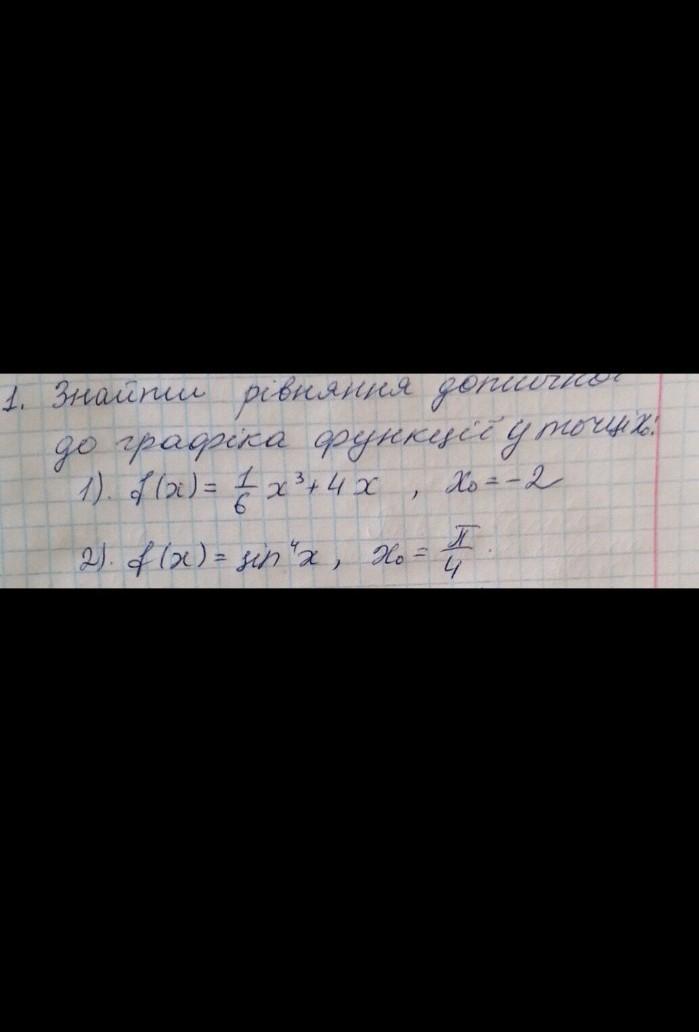 1. Знайти рівняння дотичної
до графіка функції у точці x₀:
1). f(x) = 1/6 x³ + 4x , x₀ = -2
2). f(x) = sin⁴x , x₀ = π/4.